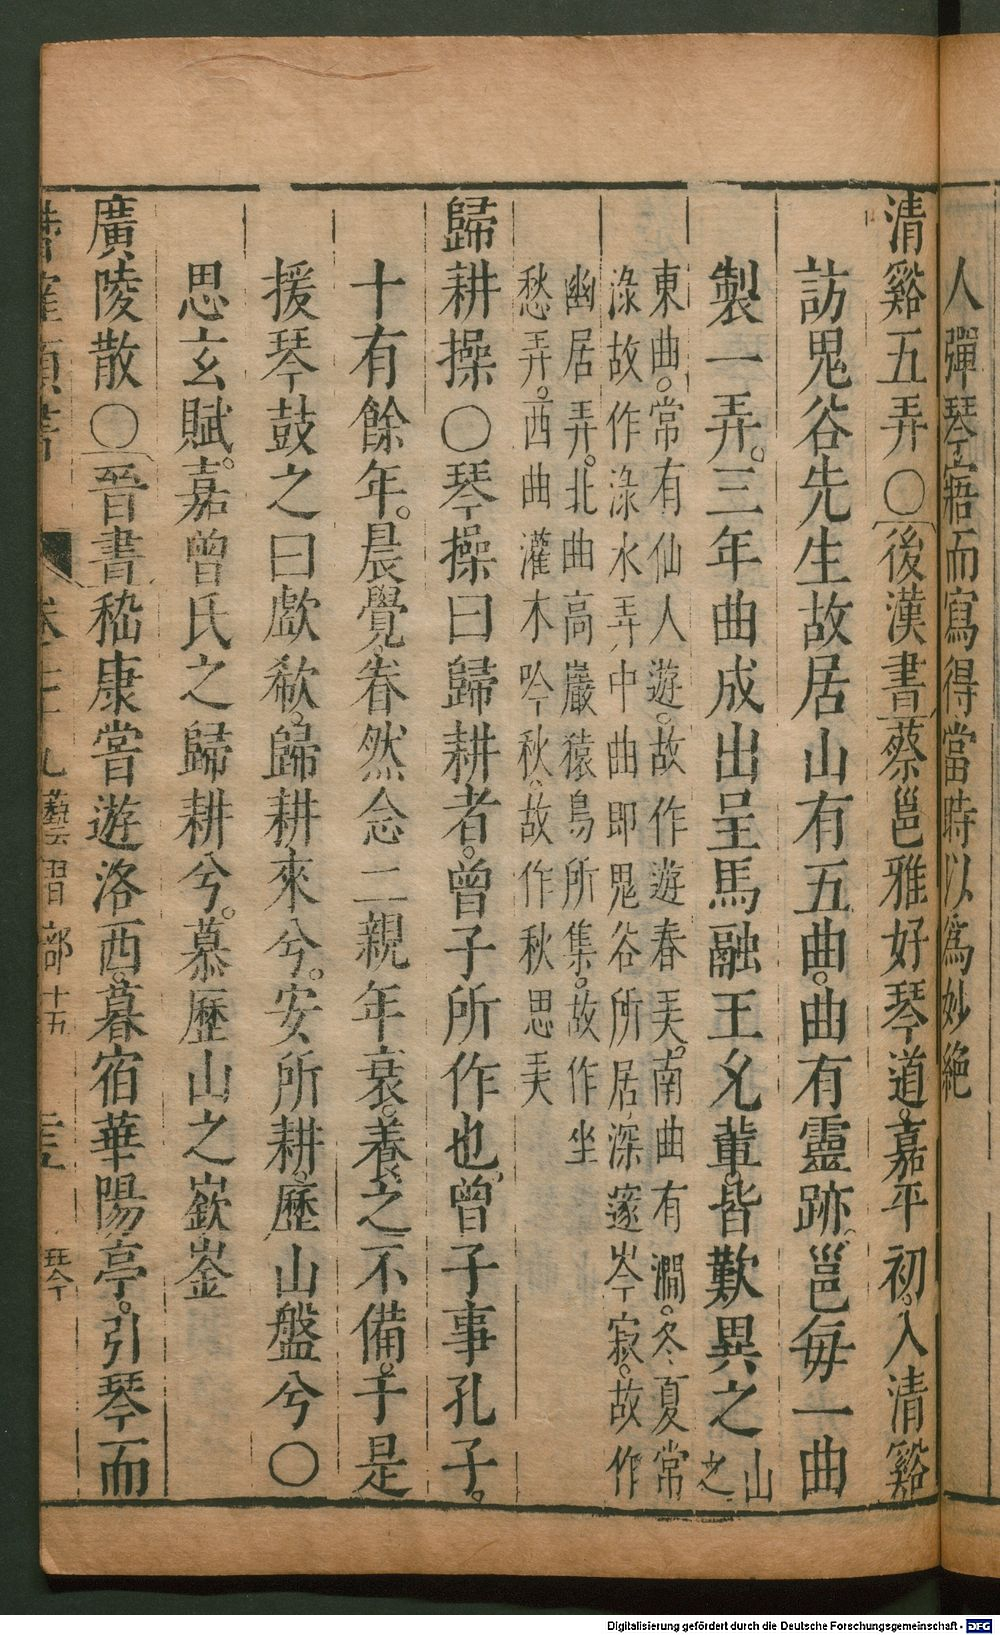 人彈琴寤而寫得當時以爲妙絕
清谿五弄〇後漢書蔡邕雅好琴道。嘉平初。入清谿
訪鬼谷先生故居山有五曲。曲有靈跡。邕每一曲
製一弄。三年曲成出呈馬融王允輩。皆歎異之山之
東曲。常有仙人遊。故作遊春美。南曲有澗。冬夏常
淥故作淥水弄中曲即鬼谷所居深邃岑寂。故作
幽居弄。北曲高巖猿鳥所集。故作坐
愁弄。西曲灌木吟秋。故作秋思
歸耕操〇琴操曰歸耕者。曾子所作也曾子事孔子。
十有餘年。晨覺眷然念二親年衰。養之不備。于是
援琴鼓之曰歔欷。歸耕來兮。安所耕。歷山盤兮〇
思玄賦。嘉曾氏之歸耕兮。慕歷山之嶔崟
廣陵散〇晉書嵇康嘗遊洛西。暮宿華陽亭。引琴而
卷
藝習部十五
琴
Digitalisierung gefördert durch die Deutsche Forschungsgemeinschaft - DFG